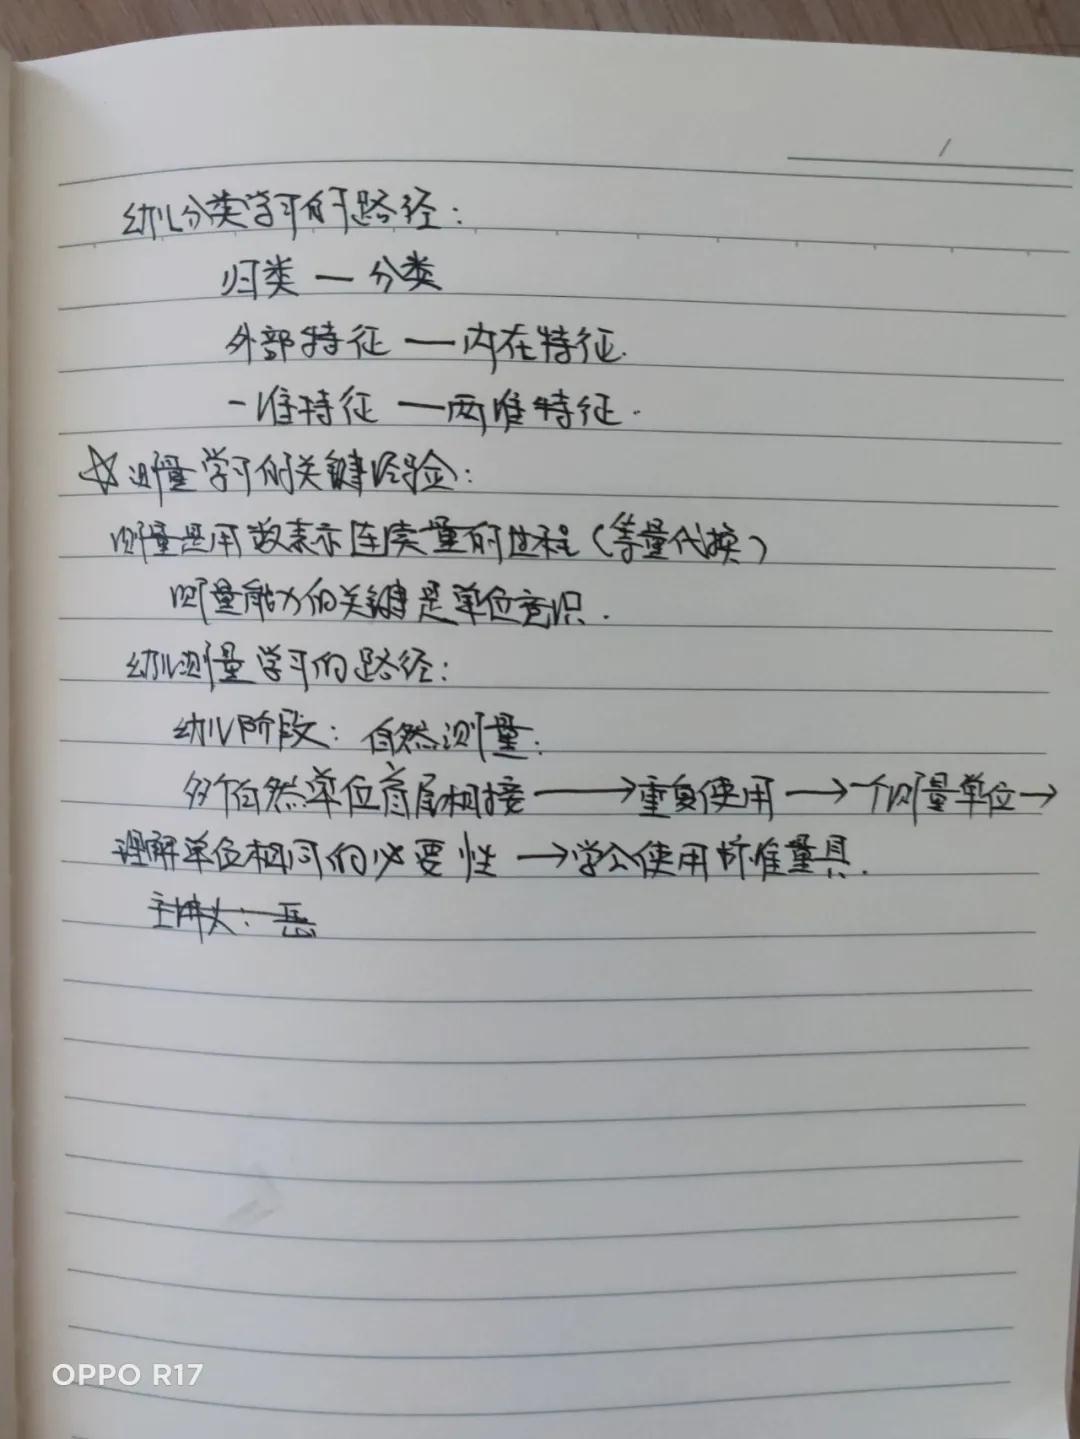 幼儿分类学习的路径：
归类 — 分类
外部特征 — 内在特征.
一准特征 — 两准特征.
☆测量学习的关键经验：
测量是用数表示连续量的过程（等量代换）
测量能力的关键是单位意识.
幼儿测量学习的路径：
幼儿阶段：自然测量：
多个自然单位首尾相接 → 重复使用 → 一个测量单位 →
理解单位相同的必要性 → 学会使用标准量具.
主讲人：
OPPO R17